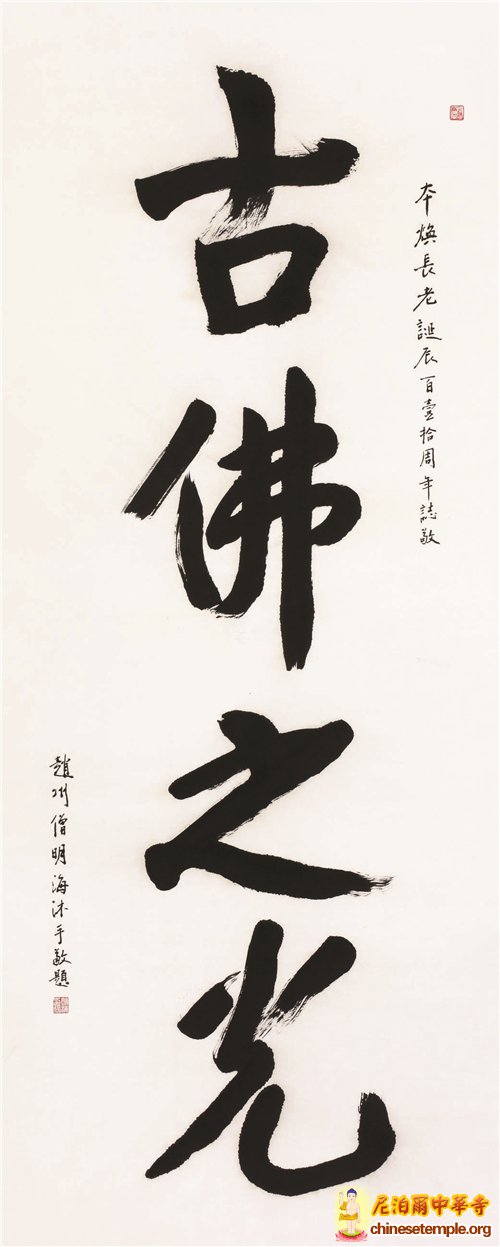 本煥長老誕辰百壹拾周年誌敬
古佛之光
趙州僧明海沐手敬題
尼泊爾中華寺
chinesetemple.org